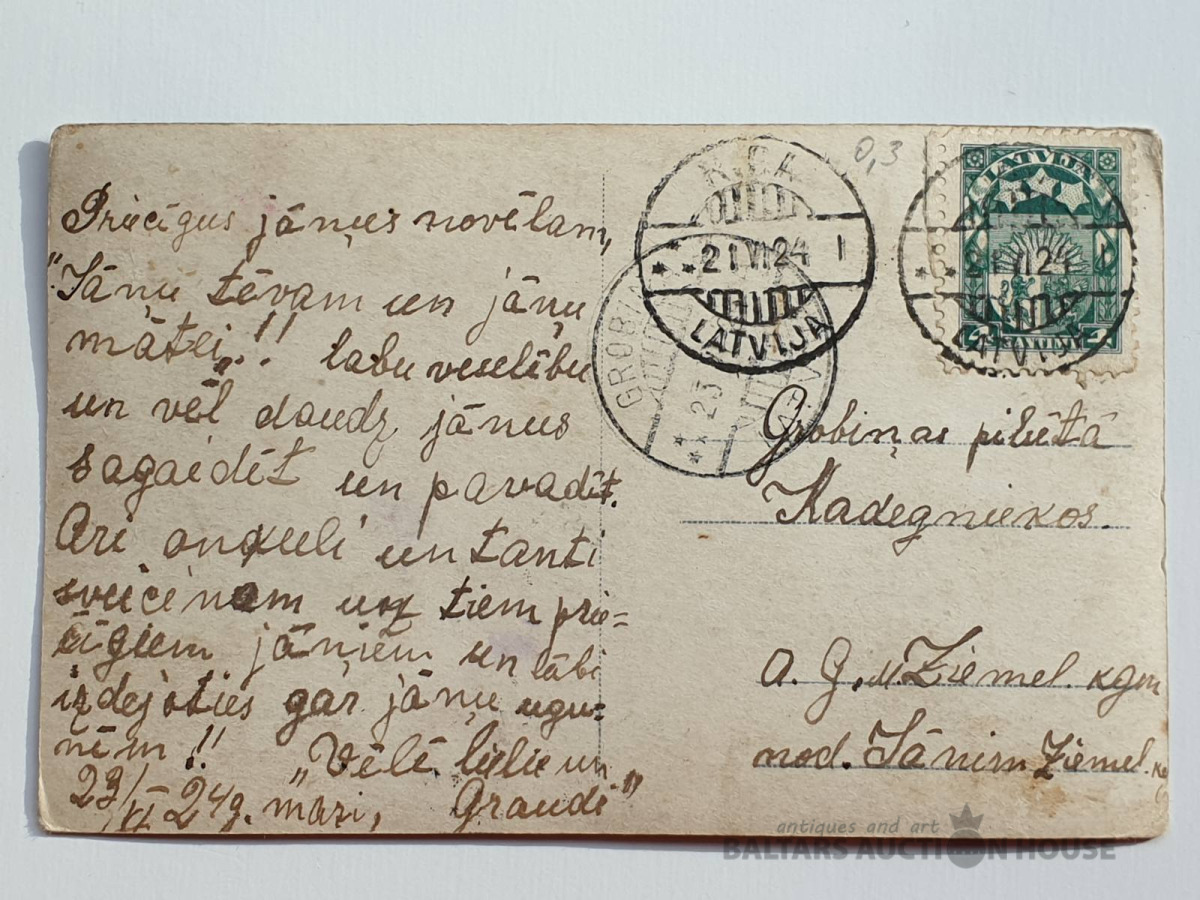 Priecīgus jāņus novēlam,
"Jāņu tēvam un jāņu
mātei"!! labu veselību
un vēl daudz jāņus
sagaidīt un pavadīt.
Ari onkuli un tanti
sveicinam uz tiem prie=
cīgiem jāņiem un labi
izdejoties gar jāņu ugu=
nēm!! "Vēlē lieli un
23/VI 24g. mazi, Graudi"
0,3
NICA
21 VI 24 I
LATVIJA
GROBIN
23
LATVIJA
21 VI 24 I
LATVIJA
Grobiņas pilsētā
Kadegniekos.
A. G. u. Ziemel. kgm
nod. Jānim Ziemel.
antiques and art
BALTARS AUCTION HOUSE